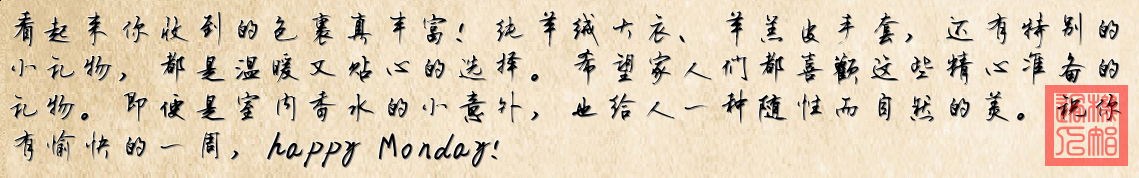 看起来你收到的包裹真丰富！纯羊绒大衣、羊羔皮手套，还有特别的
小礼物，都是温暖又贴心的选择。希望家人们都喜欢这些精心准备的
礼物。即便是室内香水的小意外，也给人一种随性而自然的美。祝你
有愉快的一周，happy Monday!